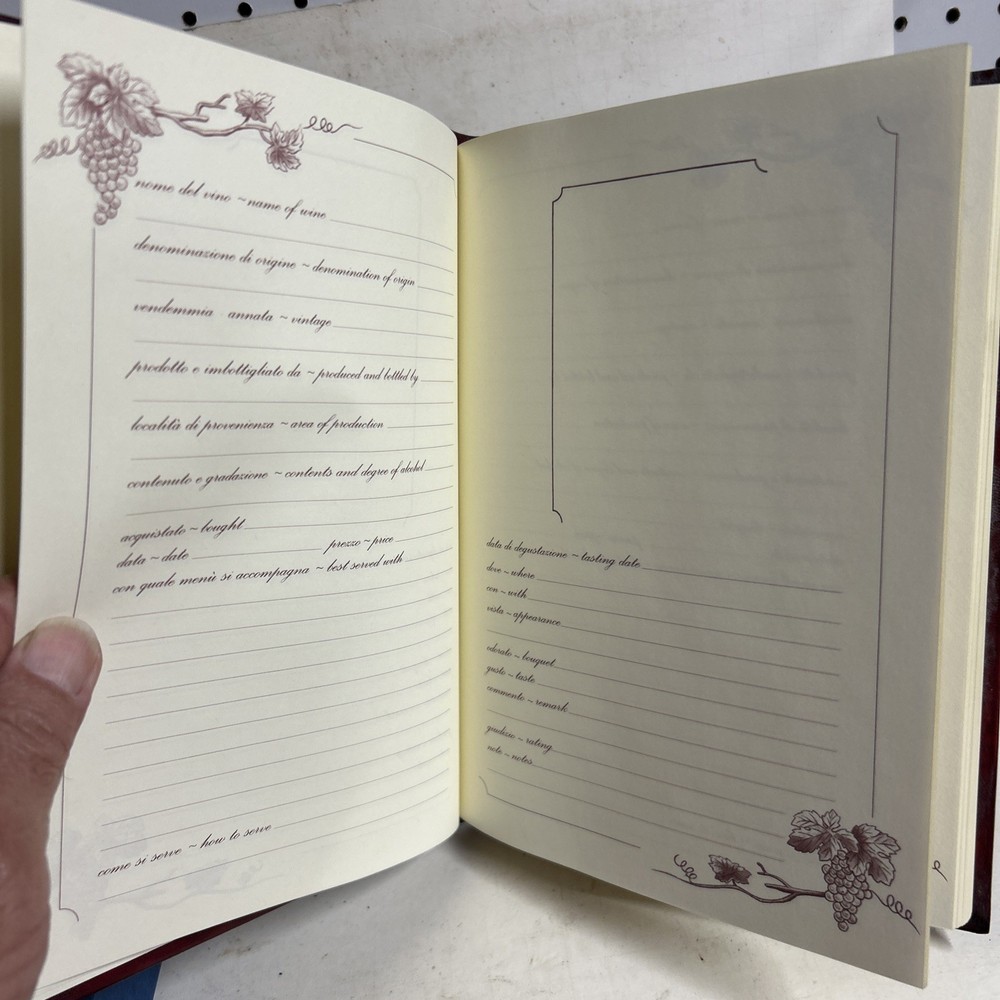 nome del vino ~ name of wine
denominazione di origine ~ denomination of origin
vendemmia annata ~ vintage
prodotto e imbottigliato da ~ produced and bottled by
località di provenienza ~ area of production
contenuto e gradazione ~ contents and degree of alcohol
acquistato ~ bought
data ~ date prezzo ~ price
con quale menù si accompagna ~ best served with
come si serve ~ how to serve
data di degustazione ~ tasting date
dove ~ where
con ~ with
vista ~ appearance
odorato ~ bouquet
gusto ~ taste
commento ~ remark
giudizio ~ rating
note ~ notes